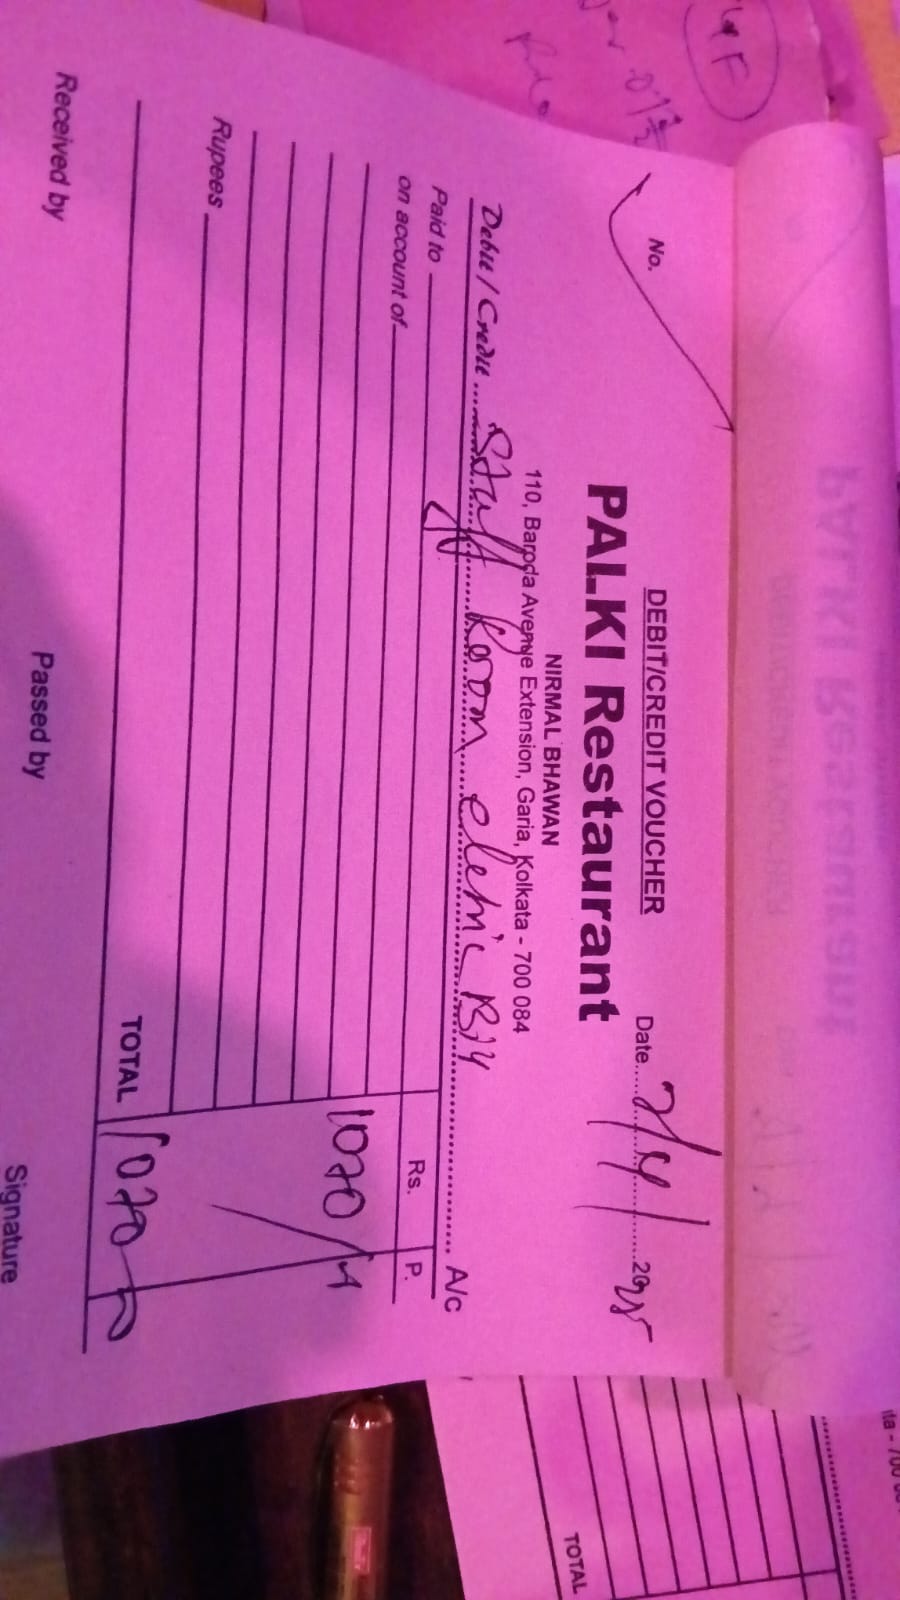 DEBIT/CREDIT VOUCHER
No.
Date.....2/4/.....2025
PALKI Restaurant
NIRMAL BHAWAN
110, Baroda Avenye Extension, Garia, Kolkata - 700 084
Debit / Credit ..... Staff Room eletric Bill ..... A/c
Paid to
on account of
Rs. P.
1070/-
Rupees
TOTAL 1070
Received by Passed by Signature
TOTAL